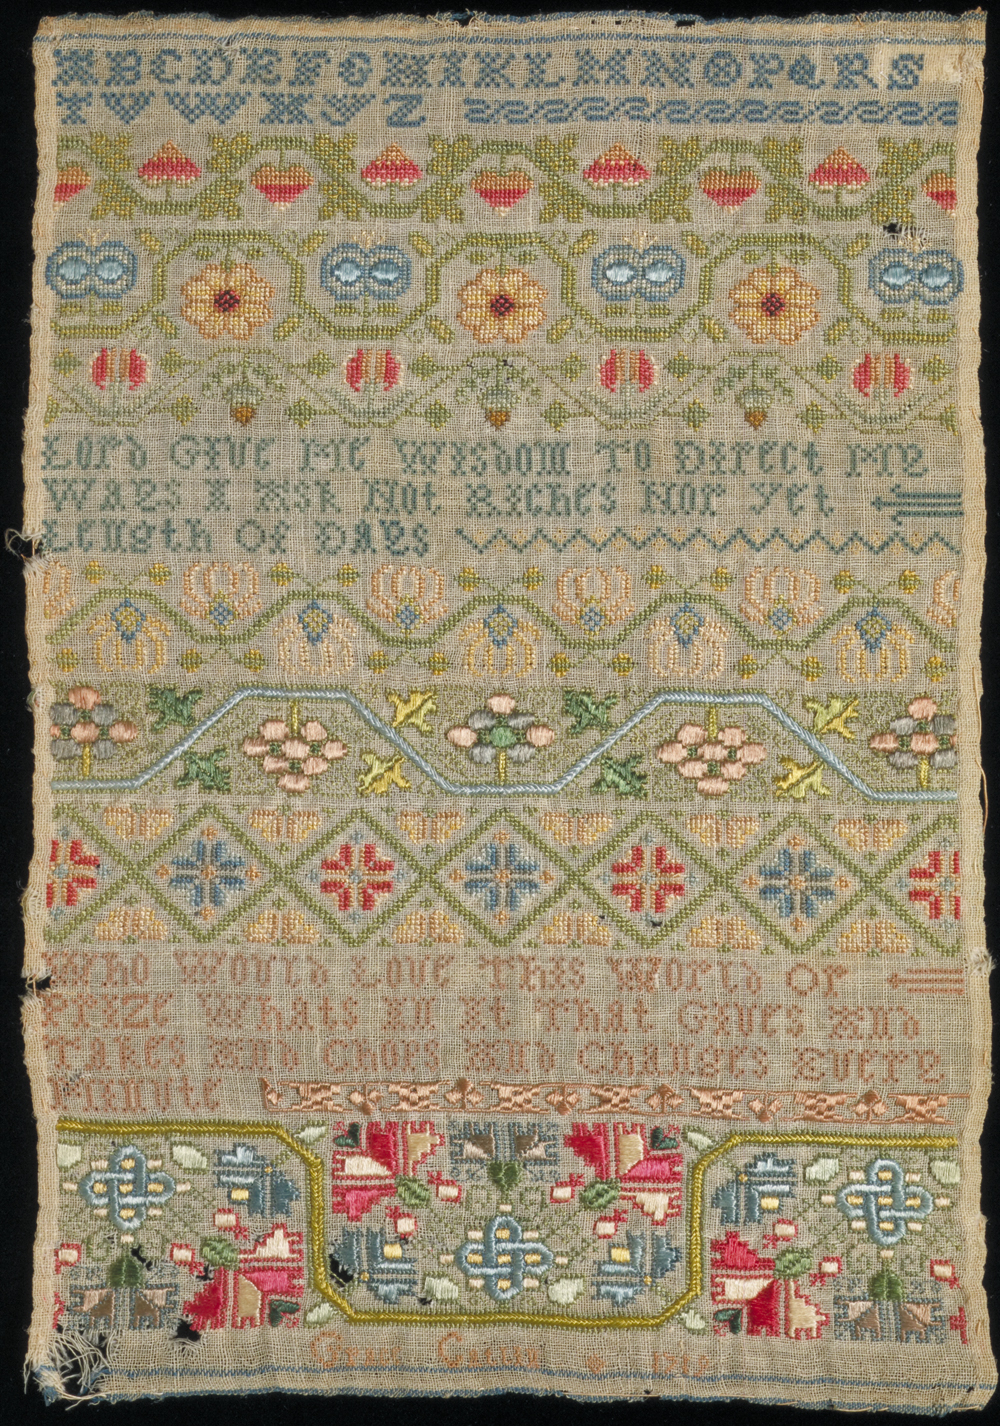 ABCDEFGHIKLMNOPQRS
TVWXYZ
Lord Give Me Wisdom To Direct My
Ways I Ask Not Riches Nor Yet
Length Of Days
Who Would Love This World Or
Prize Whats In It That Gives And
Takes And Chops And Changes Every
Minute
Grace